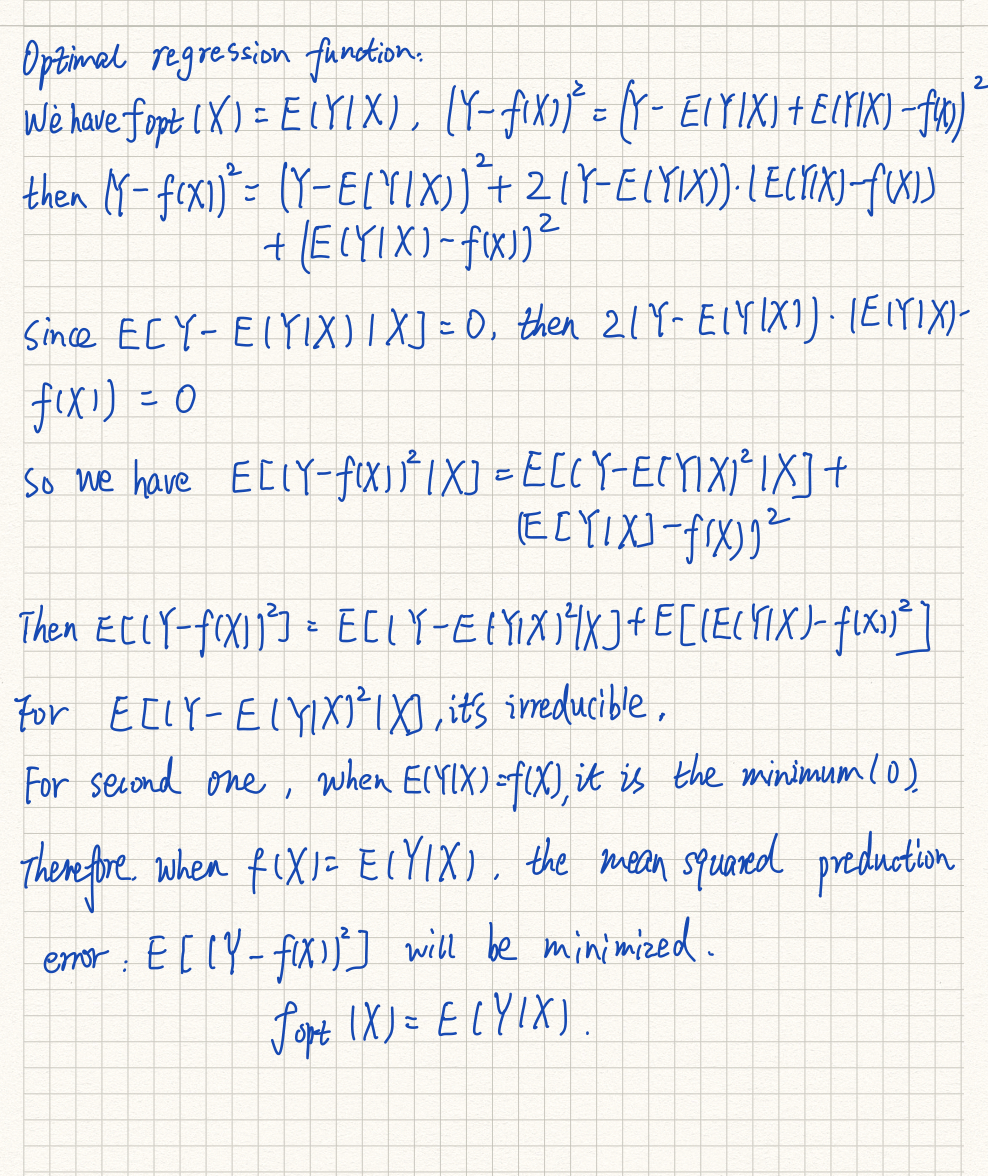 Optimal regression function.
We have fopt (X) = E(Y|X), (Y-f(X))² = (Y- E(Y|X) + E(Y|X) -f(X))²
then (Y-f(X))² = (Y-E(Y|X))² + 2(Y-E(Y|X))·(E(Y|X)-f(X))
+ (E(Y|X)-f(X))²
Since E[Y- E(Y|X) | X] = 0, then 2(Y- E(Y|X))·(E(Y|X)-
f(X)) = 0
So we have E[(Y-f(X))²|X] = E[(Y-E(Y|X)²|X] +
(E[Y|X]-f(X))²
Then E[(Y-f(X))²] = E[(Y-E(Y|X)²|X] + E[(E(Y|X)-f(X))²]
For E[(Y-E(Y|X)²|X], it's irreducible.
For second one, when E(Y|X)=f(X), it is the minimum(0).
Therefore, when f(X)= E(Y|X), the mean squared preduction
error: E[(Y-f(X))²] will be minimized.
fopt (X) = E(Y|X).